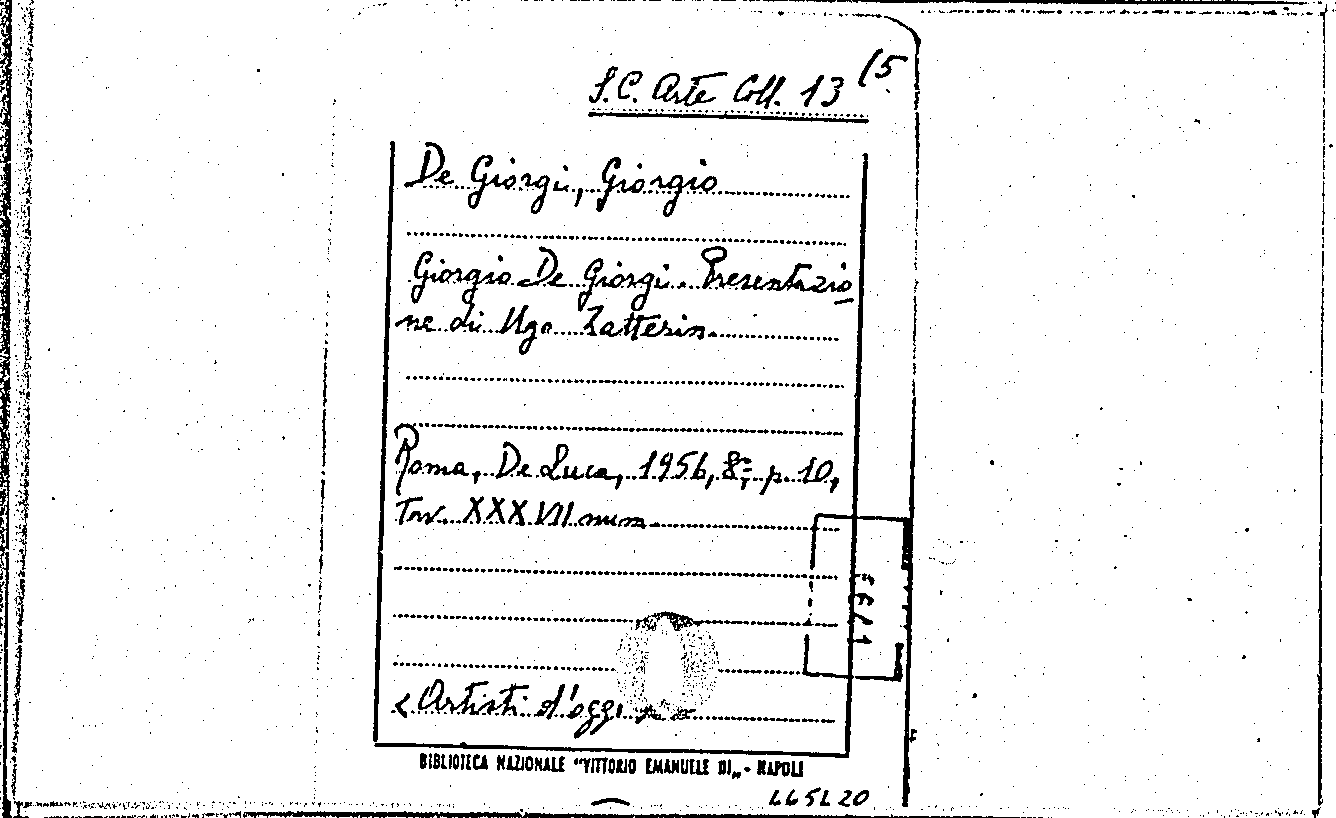 S.C. Arte Coll. 13 (5
De Giorgi, Giorgio
Giorgio De Giorgi. Presentazio
ne di Ugo Zatterin.
Roma, De Luca, 1956, 8º, p. 10,
Tav. XXXVII num.
« Artisti d'oggi
BIBLIOTECA NAZIONALE "VITTORIO EMANUELE III„ - NAPOLI